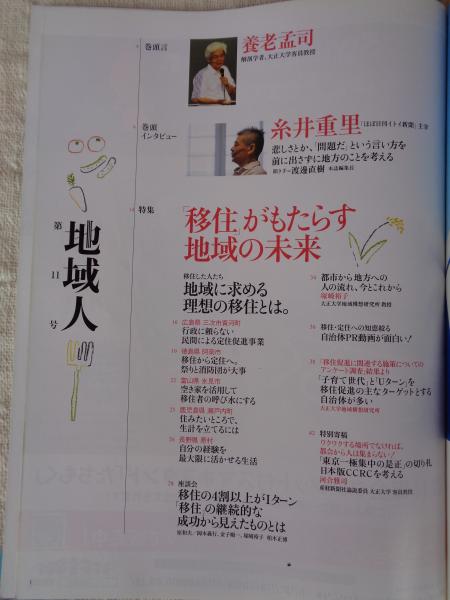 地域人
第
11
号
巻頭言
養老孟司
解剖学者、大正大学客員教授
巻頭
インタビュー
糸井重里
「ほぼ日刊イトイ新聞」主宰
悲しさとか、「問題だ」という言い方を
前に出さずに地方のことを考える
聞き手=渡邊直樹 本誌編集長
特集
「移住」がもたらす
地域の未来
移住した人たち
地域に求める
理想の移住とは。
広島県 三次市青河町
行政に頼らない
民間による定住促進事業
徳島県 阿南市
移住から定住へ。
祭りと消防団が大事
22 富山県 氷見市
空き家を活用して
移住者の呼び水にする
鹿児島県 瀬戸内町
住みたいところで、
生計を立てるには
長野県 原村
自分の経験を
最大限に活かせる生活
座談会
移住の4割以上がIターン
「移住」の継続的な
成功から見えたものとは
都市から地方への
人の流れ、今とこれから
塚崎裕子
大正大学地域構想研究所 教授
36 移住・定住への知恵絞る
自治体PR動画が面白い!
38 「移住促進に関連する施策についての
アンケート調査」結果より
「子育て世代」と「Uターン」を
移住促進の主なターゲットとする
自治体が多い
大正大学地域構想研究所
42 特別寄稿
ワクワクする場所でなければ、
都会から人は集まらない!
「東京一極集中の是正」の切り札
日本版CCRCを考える
河合雅司
産経新聞社論説委員 大正大学 客員教授